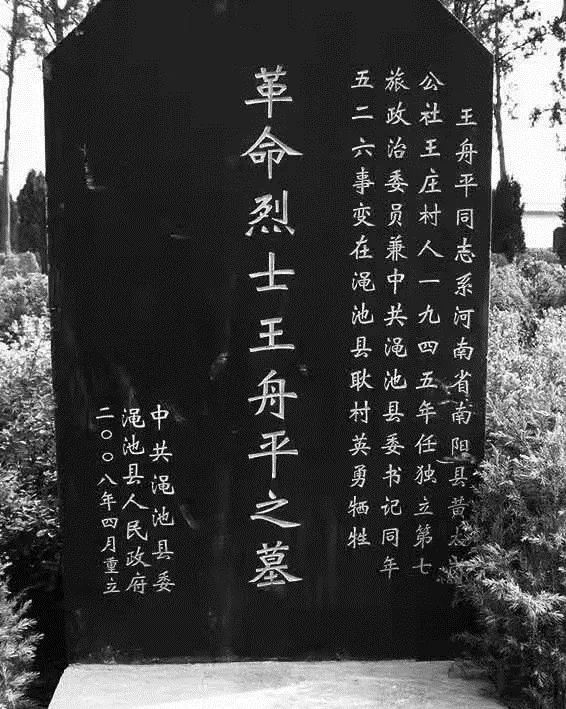 王舟平同志系河南省南阳县黄
公社王庄村人一九四五年任独立第七
旅政治委员兼中共渑池县委书记同年
五二六事变在渑池县耿村英勇牺牲
革命烈士王舟平之墓
中共渑池县委
渑池县人民政府
二〇〇八年四月重立